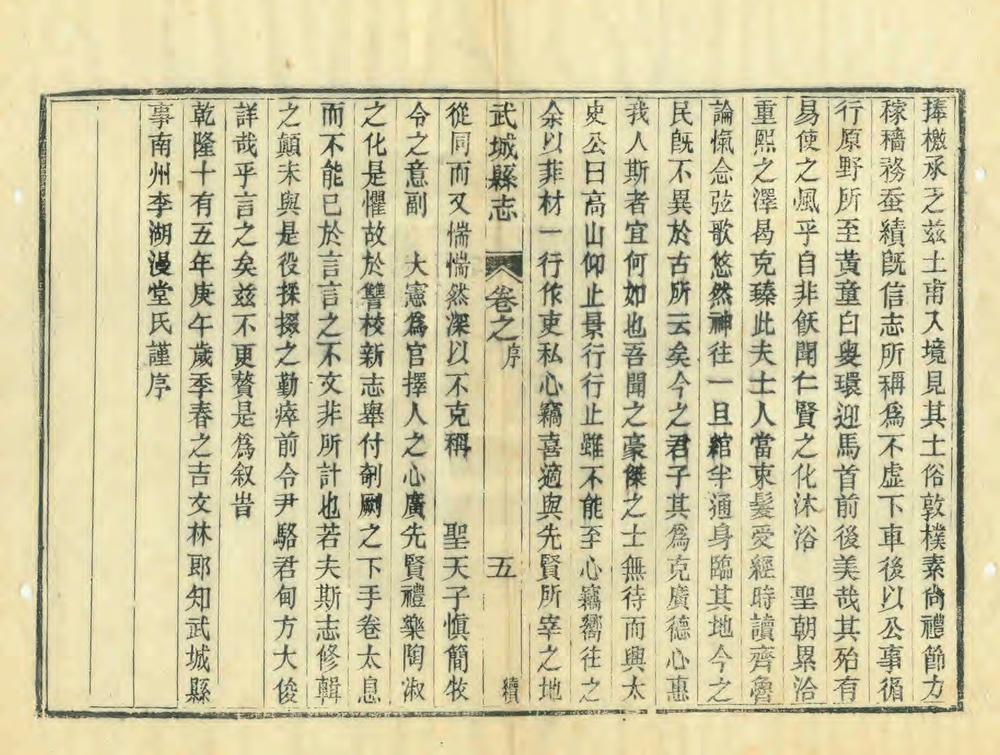 捧檄承乏兹土甫入境見其土俗敦樸素尚禮節力
稼穡務蚕績旣信志所稱爲不虛下車後以公事循
行原野所至黃童白叟環迎馬首前後美哉其殆有
易使之風乎自非飫聞仁賢之化沐浴　聖朝累洽
重熙之澤曷克臻此夫士人當束髮受經時讀齊魯
論愾念弦歌悠然神往一旦綰半通身臨其地今之
民旣不異於古所云矣今之君子其爲克廣德心惠
我人斯者宜何如也吾聞之豪傑之士無待而興太
史公曰高山仰止景行行止雖不能至心竊嚮往之
余以菲材一行作吏私心竊喜適與先賢所宰之地
武城縣志　卷之序　五　續
從同而又惴惴然深以不克稱　聖天子愼簡牧
令之意副　大憲爲官擇人之心廣先賢禮樂陶淑
之化是懼故於讐校新志舉付剞劂之下手卷太息
而不能已於言言之不文非所計也若夫斯志修輯
之顛末與是役採掇之勤瘁前令尹駱君甸方大俊
詳哉乎言之矣兹不更贅是爲叙旹
乾隆十有五年庚午歲季春之吉文林郎知武城縣
事南州李湖漫堂氏謹序